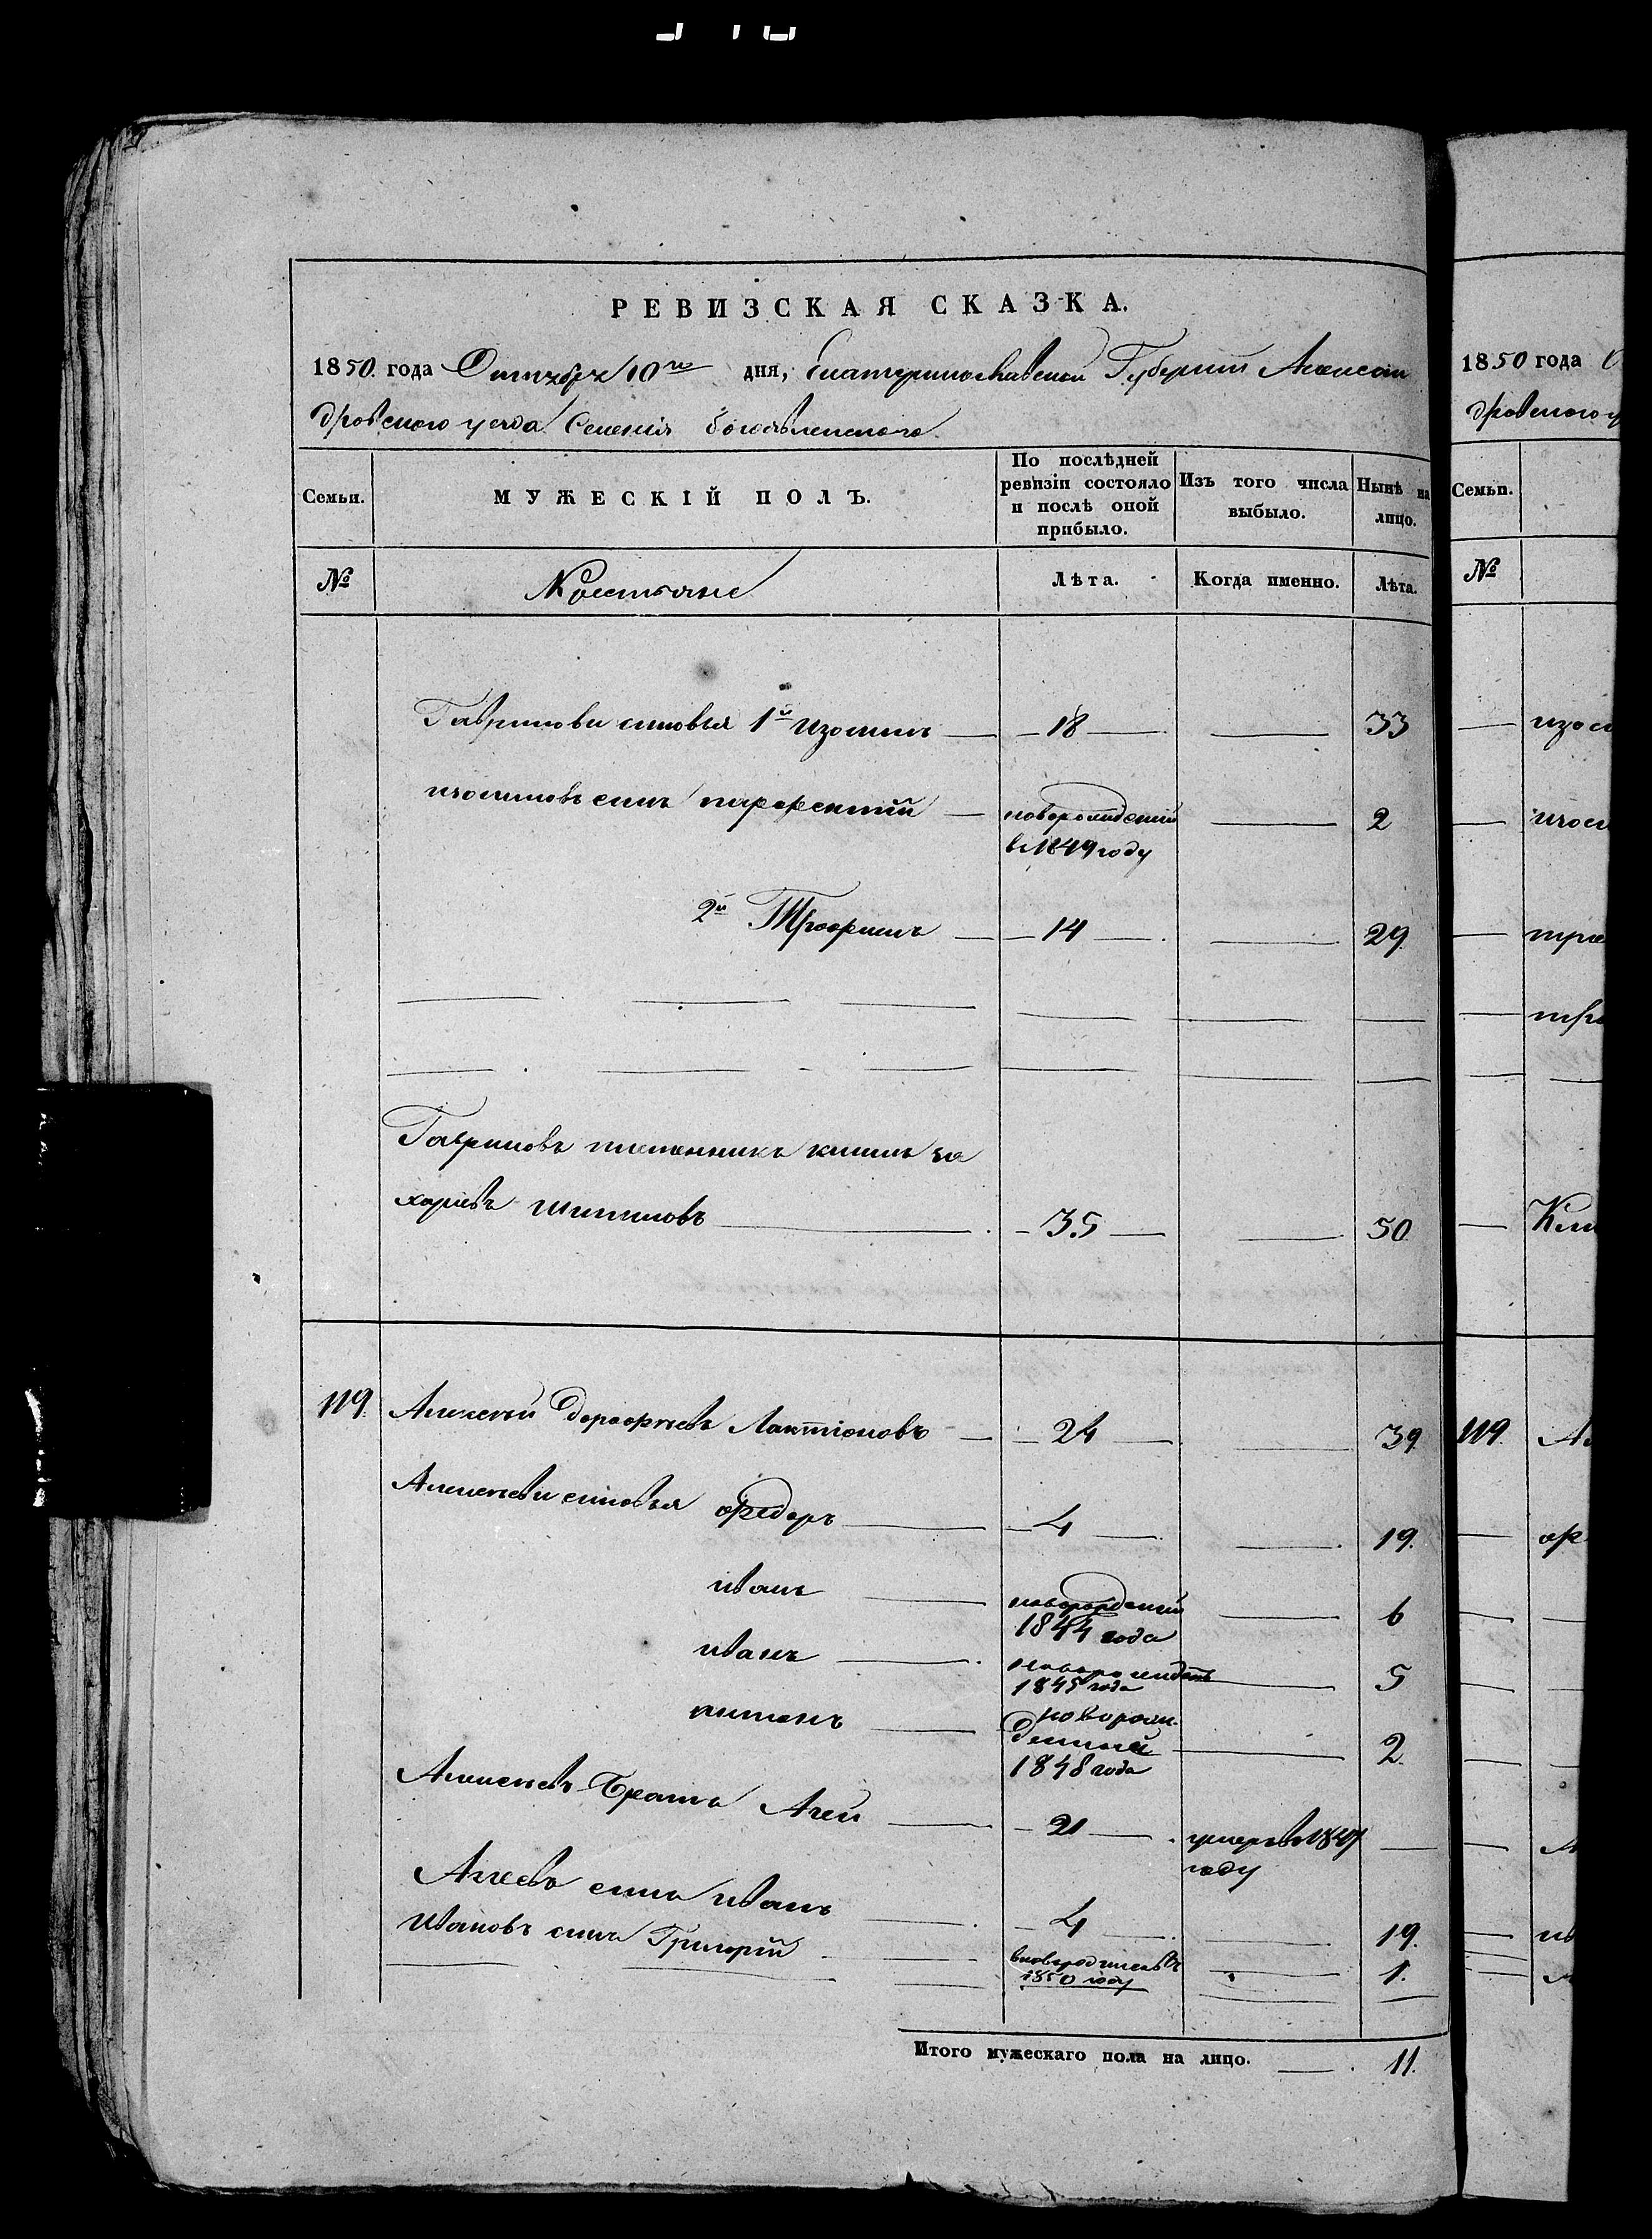 РЕВИЗСКАЯ СКАЗКА.
1850. года Октября 10го дня, Екатеринославской Губернии Алексан
дровского уезда Селения Богоявленского
Семьи. МУЖЕСКІЙ ПОЛЪ. По послѣдней ревизіи состояло и послѣ оной прибыло. Изъ того числа выбыло. Нынѣ на лицо.
№ Крестьяне Лѣта. Когда именно. Лѣта.
Гавриловы сыновья 1й изотимъ 18 33
изотимовъ сынъ парфентий новорождений 2
в 1849 году
2й Трофимъ 14 29
Гавриловъ племенникъ климъ за
харіевъ шипиловъ 35 50
119. Алексей Дорофеевъ Лактіоновъ 24 39
Алексеевы сыновья федоръ 4 19.
иванъ новорожденый 6
1844 года
иванъ новорожденъ 5
1845 года
антонъ новорож- 2.
денной
1848 года
Алексеевъ Братъ Агей 21 умеръ в 1847
году
Агеевъ сынъ иванъ 4 19.
Ивановъ сынъ Григорій вновьродился в 1.
1850 году
Итого мужескаго пола на лицо. 11.
1850 года О
дровского у
Семьи.
№
изоси
тро
Кли
119. Ал